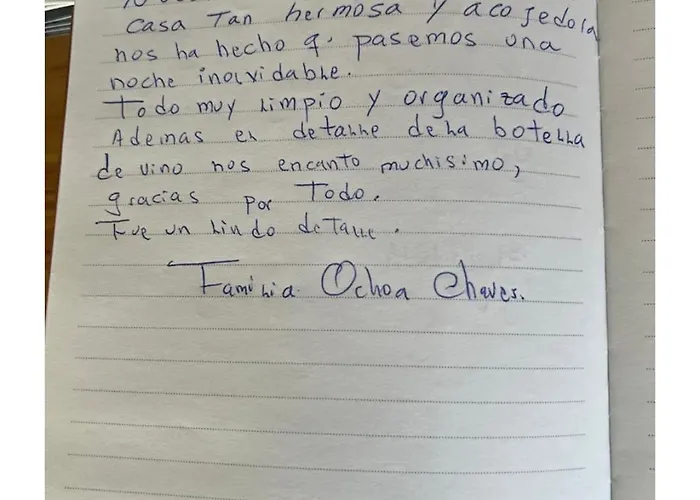 casa Tan hermosa y acogedora
nos ha hecho q. pasemos una
noche inolvidable.
Todo muy limpio y organizado
Ademas el detalle de la botella
de vino nos encanto muchisimo,
gracias por Todo.
Fue un lindo detalle.
Familia Ochoa Chaves.